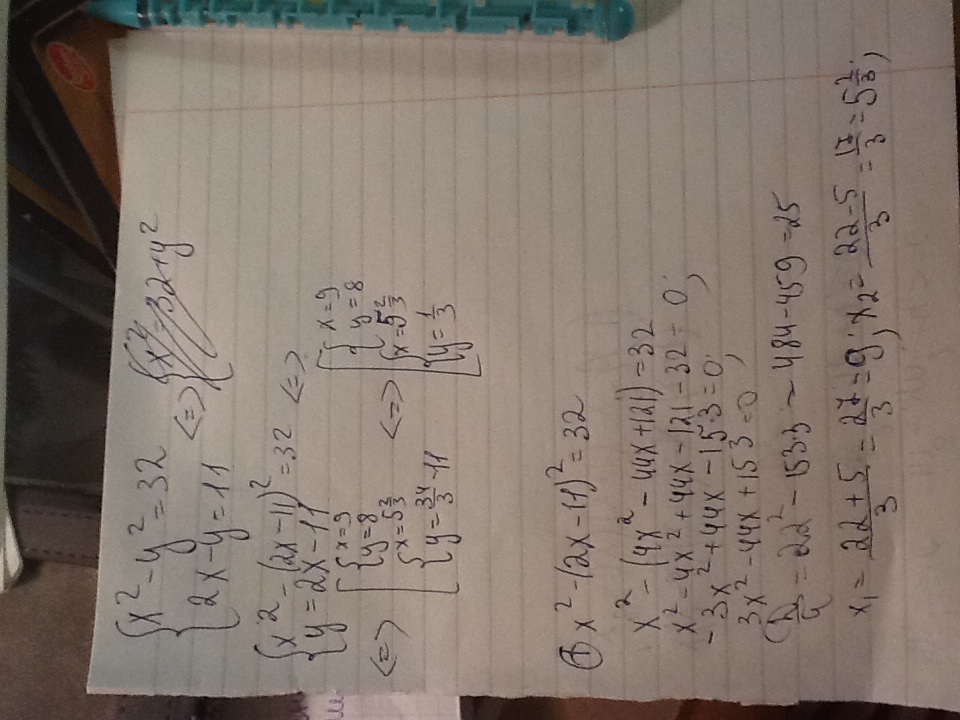 { x² - y² = 32
{ 2x - y = 11 <=> { x² = 32 + y²
{ x² - (2x - 11)² = 32
{ y = 2x - 11 <=>
<=> [ { x = 9
{ y = 8
{ x = 5 2/3
{ y = 34/3 - 11
<=> [ { x = 9
{ y = 8
{ x = 5 2/3
{ y = 1/3
① x² - (2x - 11)² = 32
x² - (4x² - 44x + 121) = 32
x² - 4x² + 44x - 121 - 32 = 0;
- 3x² + 44x - 153 = 0;
3x² - 44x + 153 = 0;
D/4 = 22² - 153·3 = 484 - 459 = 25
x₁ = (22 + 5)/3 = 27/3 = 9; x₂ = (22 - 5)/3 = 17/3 = 5 2/3;